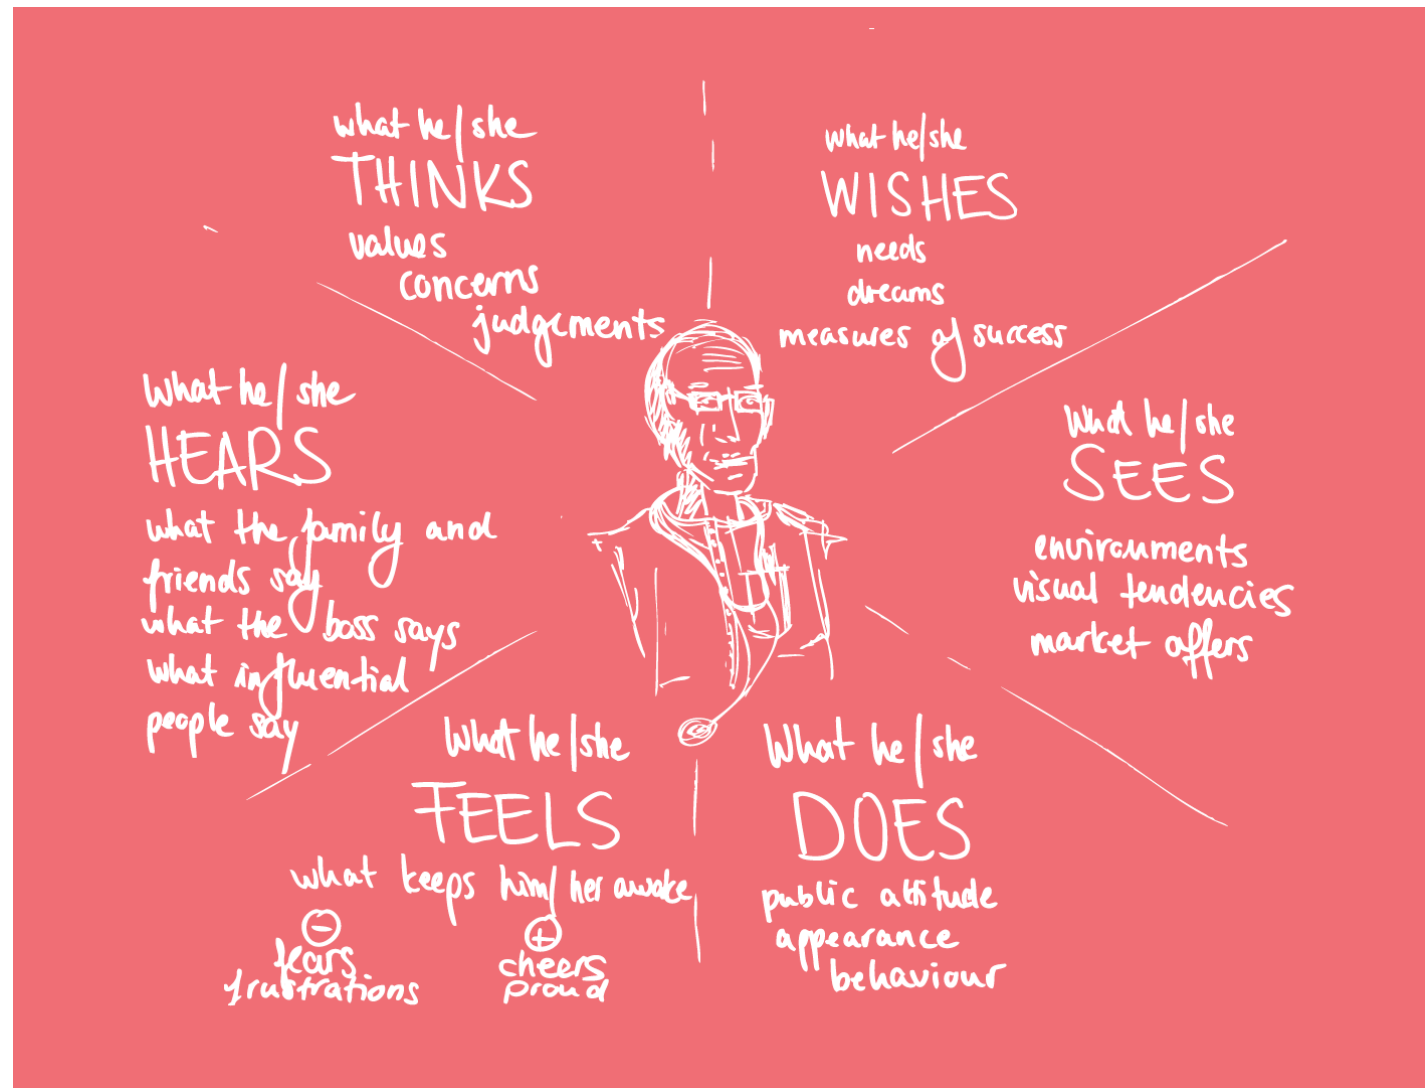 what he/she
THINKS
values
concerns
judgements
what he/she
WISHES
needs
dreams
measures of success
what he/she
HEARS
what the family and
friends say
what the boss says
what influential
people say
What he/she
SEES
environments
visual tendencies
market offers
What he/she
FEELS
what keeps him/her awake
-
fears
frustrations
+
cheers
proud
What he/she
DOES
public attitude
appearance
behaviour